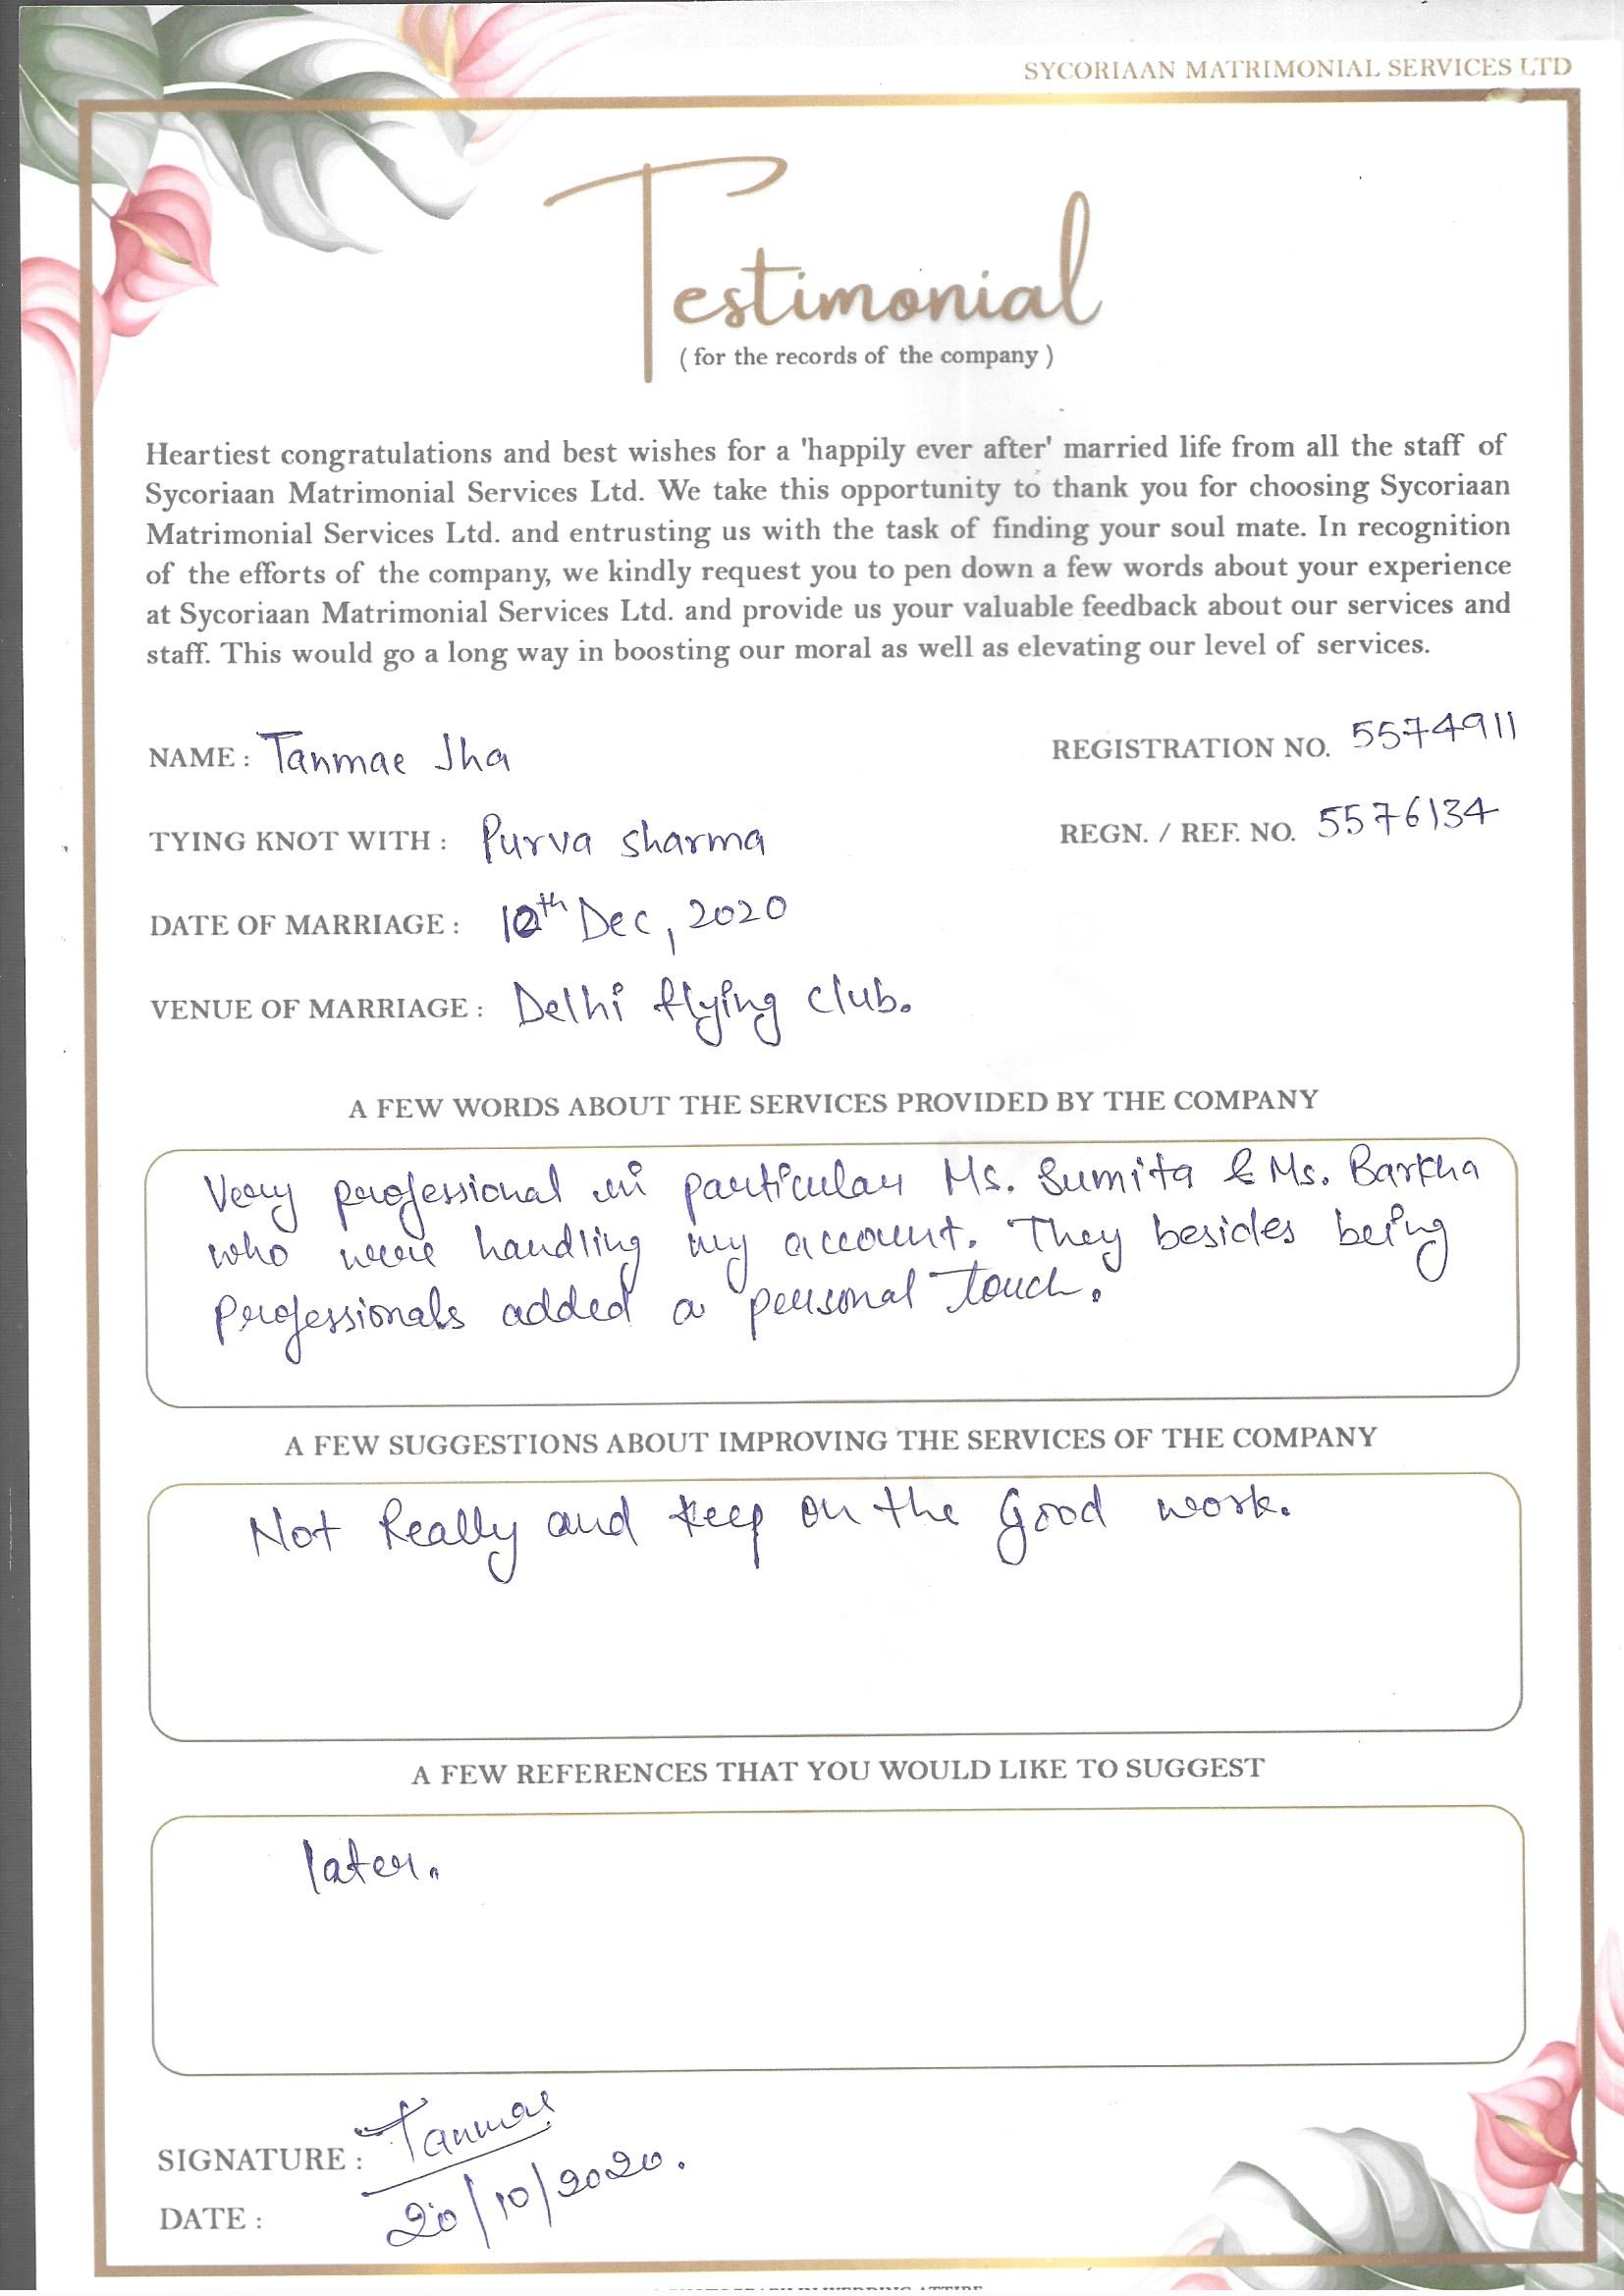 SYCORIAAN MATRIMONIAL SERVICES LTD
Testimonial
( for the records of the company )
Heartiest congratulations and best wishes for a 'happily ever after' married life from all the staff of
Sycoriaan Matrimonial Services Ltd. We take this opportunity to thank you for choosing Sycoriaan
Matrimonial Services Ltd. and entrusting us with the task of finding your soul mate. In recognition
of the efforts of the company, we kindly request you to pen down a few words about your experience
at Sycoriaan Matrimonial Services Ltd. and provide us your valuable feedback about our services and
staff. This would go a long way in boosting our moral as well as elevating our level of services.
NAME : Tanmae Jha REGISTRATION NO. 5574911
TYING KNOT WITH : Purva sharma REGN. / REF. NO. 5576134
DATE OF MARRIAGE : 10th Dec, 2020
VENUE OF MARRIAGE : Delhi flying club.
A FEW WORDS ABOUT THE SERVICES PROVIDED BY THE COMPANY
Very professional in particular Ms. Sumita & Ms. Barkha
who were handling my account. They besides being
Professionals added a personal touch.
A FEW SUGGESTIONS ABOUT IMPROVING THE SERVICES OF THE COMPANY
Not Really and keep on the good work.
A FEW REFERENCES THAT YOU WOULD LIKE TO SUGGEST
later.
SIGNATURE : Tanmae
DATE : 20/10/2020.